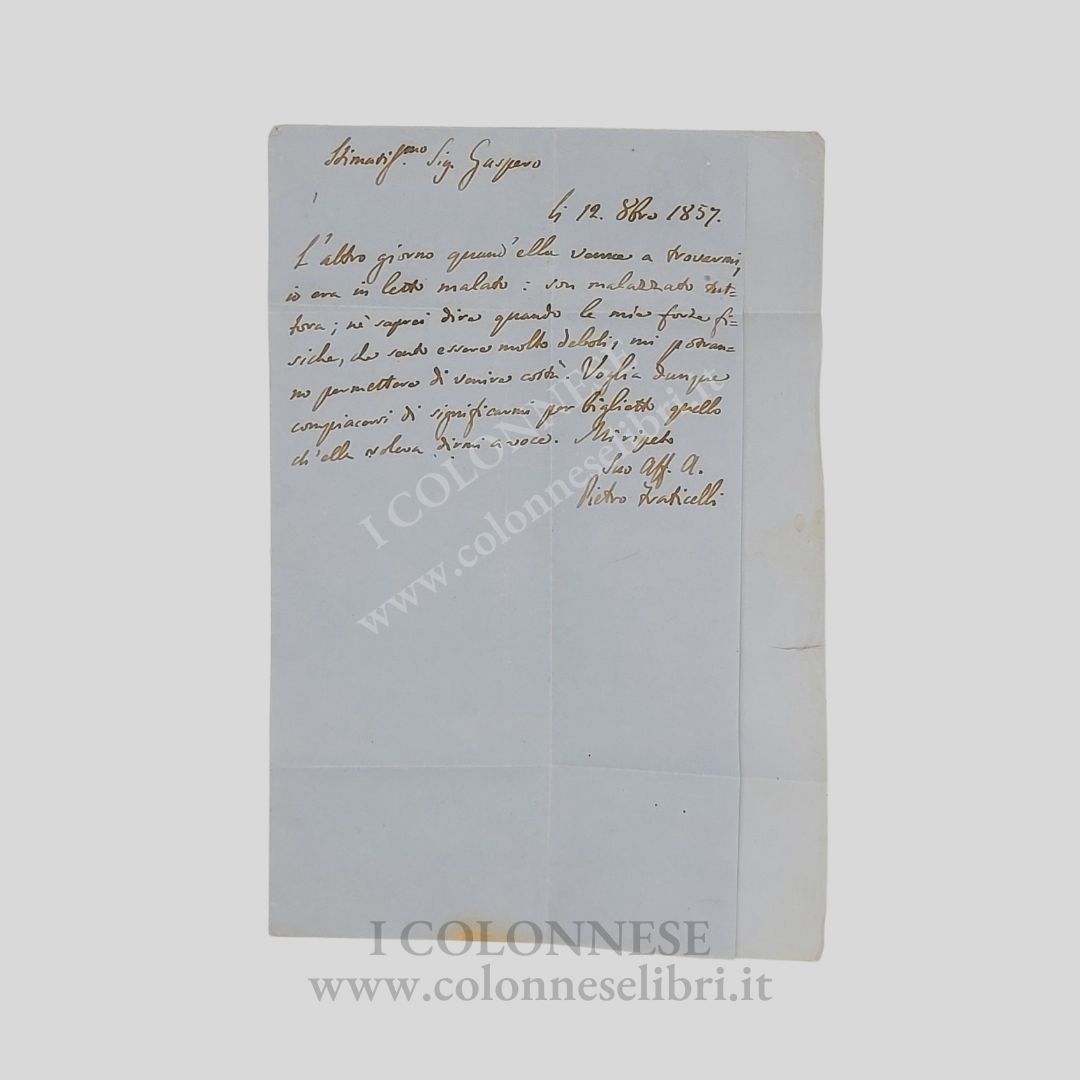 Stimatiss.mo Sig. Gaspero
li 12. 8bre 1857.
L'altro giorno quand'ella venne a trovarmi,
io era in letto malato: son malazzato tut=
tora; nè saprei dire quando le mie forze fi=
siche, che sento essere molto deboli, mi potran=
no permettere di venire costà. Voglia dunque
compiacersi di significarmi per biglietto quello
ch'ella voleva dirmi a voce. Mi ripeto
Suo Aff. A.
Pietro Fraticelli
I COLONNESE
www.colonneselibri.it
I COLONNESE
www.colonneselibri.it